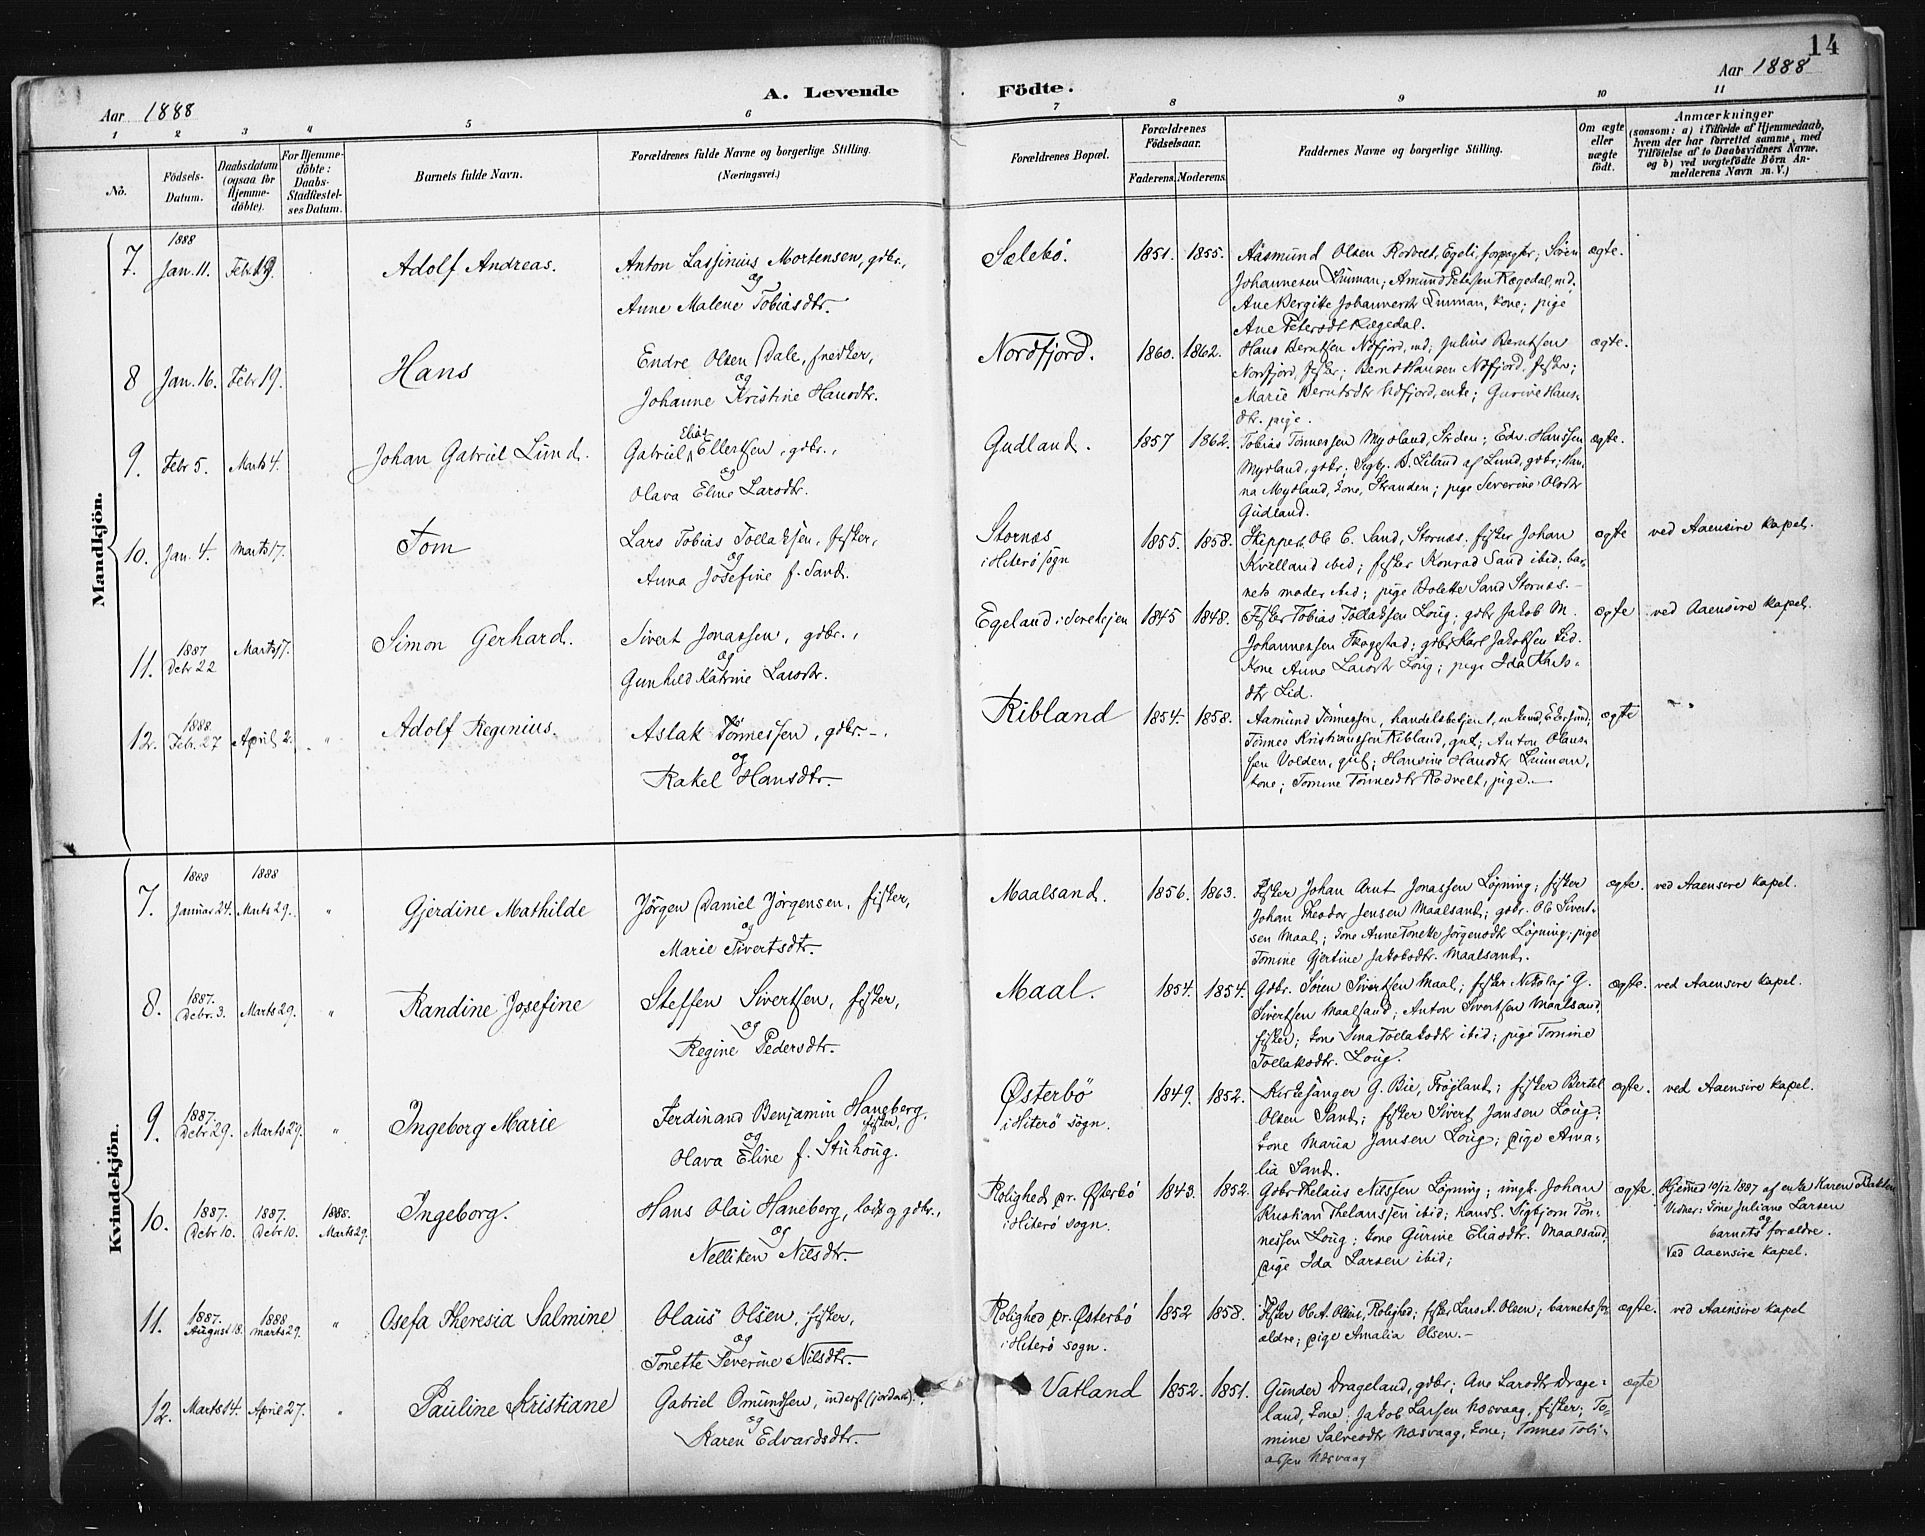 14
Aar 1888
A. Levende Födte.
Aar 1888
1 2 3 " 5 6 7 8 9 10 11
No.
Födsels-Datum.
Daabsdatum (ogsaa for Hjemme-döbte).
For Hjemme-döbte: Daabs-Stadfæstel-ses Datum.
Barnets fulde Navn.
Forældrenes fulde Navne og borgerlige Stilling.
(Næringsvei.)
Forældrenes Bopæl.
Forældrenes Födselsaar.
Faderens. Moderens.
Faddernes Navne og borgerlige Stilling.
Om ægte eller uægte födt.
Anmærkninger
(saasom: a) i Tilfælde af Hjemmedaab,
hvem der har forrettet samme, med
Tilföielse af to Daabsvidners Navne,
og b) ved uægtefödte Börn An-
melderens Navn m. V.)
Mandkjön.
7. 1888 Jan. 11. Febr 19. Adolf Andreas.
Anton Lassinius Mortensen, gdbr.,
og
Anne Malene Tobiasdtr.
Sælebö. 1851. 1855.
Aasmund Olsen Rodvelt, Egeli, forpagter; Sören
Johannesen Lunman; Amund Petersen Rægedal, md.
Ane Bergitte Johannesdt Lunman, kone; pige
Ane Petersdt Rægedal.
ægte.
8 Jan. 16. Febr 19. Hans
Endre Olsen Dale, snedker,
og
Johanne Kristine Hansdtr.
Nordfjord. 1860. 1862.
Hans Berntsen Ndfjord, md; Julius Berntsen
Nordfjord, fisker; Bernt Hansen Ndfjord, fisker;
Marie Berntsdtr Ndfjord, enke; Gurine Hans-
dtr. pige.
ægte.
9. Febr 5. Marts 4. Johan Gabriel Lund.
Gabriel Elias Ellertsen, gdbr.,
og
Olava Eline Larsdtr.
Gudland. 1857 1862.
Tobias Tönnessen Mydland, Stranden; Edv. Hanssen
Mydland, gdbr; Sigbj. B. Eiland af Lund, gdbr; Han-
na Mydland, kone, Stranden; pige Severine Olsdtr
Gudland.
ægte.
10. Jan. 4. Marts 17. Tom
Lars Tobias Tollaksen, fisker,
og
Anna Josefine f. Sand.
Stornæs
i Hiterö sogn
1855. 1858.
Skipper Ole C. Sand, Stornæs. fisker Johan
Kvelland ibid; fisker Konrad Sand ibid; bar-
nets moder ibid; pige Bolette Sand Stornæs.
ægte ved Aaensire kapel.
11. 1887 Debr 22 Marts 17. Simon Gerhard.
Sivert Jonassen, gdbr.,
og
Gunhild Katrine Larsdtr.
Egeland i 1845 1848.
Fisker Tobias Tollaksen Loug; gdbr Jakob M.
Johannessen Skagestad; gdbr Karl Jakobsen Lid.
Kone Anne Larsdtr Loug; pige Ida Khels-
dtr Lid.
ægte ved Aaensire kapel.
12. 1888. Feb. 27 April 2. " Adolf Reginius.
Aslak Tönnessen, gdbr.,
og
Rakel Hansdtr.
Ribland 1854. 1858.
Aamund Tönnessen, handelsbetjent, Ekersund;
Tönnes Kristianssen Ribland, gut; Anton Olaus-
sen Volden, gut; Hansine Hansdtr Lunman,
kone; Tomine Tönnesdtr Rodvelt, pige.
ægte
Kvindekjön.
7. 1888 Januar 24. 1888 Marts 29. " Gjerdine Mathilde
Jörgen Daniel Jörgensen, fisker,
og
Marie Sivertsdtr.
Maalsand. 1856. 1863.
Fisker Johan Arnt Jonassen Löjning; fisker
Johan Theodor Jensen Maalsand; gdbr. Ole Sivert-
sen Maal; kone Anne Tonette Jörgensdtr Löjning; pige
Tomine Gjertine Jakobsdtr. Maalsand.
ægte. ved Aaensire kapel.
8. 1887. Debr. 3. Marts 29. " Randine Josefine
Steffen Sivertsen, fisker,
og
Regine Pedersdtr.
Maal. 1854. 1854.
Gdbr. Sören Sivertsen Maal; fisker Nikolaj G.
Sivertsen Maalsand; Anton Sivertsen Maalsand,
fisker; kone Sina Tollaksdtr ibid; pige Tomine
Tollaksdtr. Loug.
ægte. ved Aaensire kapel.
9. 1887. Debr 29. Marts 29. " Ingeborg Marie
Ferdinand Benjamin Haneberg, fisker,
og
Olava Eline f. Stuhoug.
Østerbö
i Hiterö sogn.
1849. 1852.
Kirkesanger G. Bie, Fröjland; fisker Bertel
Olsen Sand; fisker Sivert Jansen Loug;
kone Maria Jansen Loug; pige Ama-
lia Sand.
ægte. ved Aaensire kapel.
10. 1887. Debr 10. 1887. Debr 10. 1888. Marts 29. Ingeborg.
Hans Olai Haneberg, lods og gdbr.,
og
Nelliken Nilsdtr.
Rolighed pr. Østerbö
i Hiterö sogn.
1843. 1852.
Gdbr Thelaus Nilssen Löjning; ungk. Johan
Kristian Thelaussen ibid; handl. Sigbjorn Tön-
nessen Loug; kone Gurine Eliasdtr. Maalsand,
pige Ida Larsen ibid;
ægte.
Hjemmed 10/12 1887 af enke Karen Bakken
Vidner: kone Juliane Larsen
og
barnets forældre.
Ved Aaensire kapel.
11. 1887. August 18. 1888 Marts 29. " Osefa Theresia Salmine
Olaus Olsen, fisker,
og
Tonette Severine Nilsdtr.
Rolighed pr. Østerbö
i Hiterö sogn.
1852 1858.
Fisker Ole A. Olsen, Rolighed; fisker Lars A. Olsen; barnets for-
ældre; pige Amalia Olsen.
ægte. ved Aaensire kapel
12. Marts 14. April 27. " Pauline Kristiane
Gabriel Omundsen, inderst (jordarb),
og
Karen Edvardsdtr.
Vatland 1852. 1851.
Gunder Drageland, gdbr; Ane Larsdtr Drage-
land, kone; Jakob Larsen Næsvaag, fisker; To-
mine Salvesdtr Næsvaag, kone; Tönnes Tobi-
assen Næsvaag
ægte